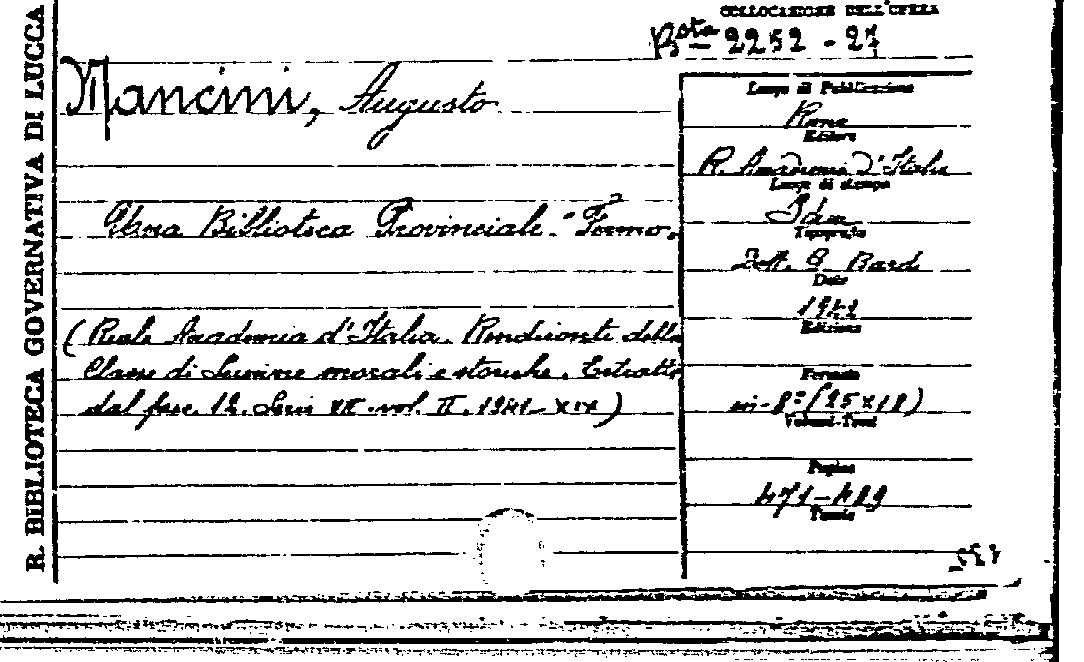 R. BIBLIOTECA GOVERNATIVA DI LUCCA
COLLOCAZIONE DELL'OPERA
Bsta 2252 - 27
Mancini, Augusto
Una Biblioteca Provinciale - Fermo.
(Reale Accademia d'Italia. Rendiconti della
Classe di Scienze morali e storiche. Estratto
dal fasc. 12. Serie VII. vol. II. 1941-XIX)
Luogo di Pubblicazione
Roma
Editore
R. Accademia d'Italia
Luogo di stampa
Idem
Tipografia
Dott. G Bardi
Data
Edizione
Formato
in-8° (25x18)
Volumi-Tomi
Pagine
Tavole